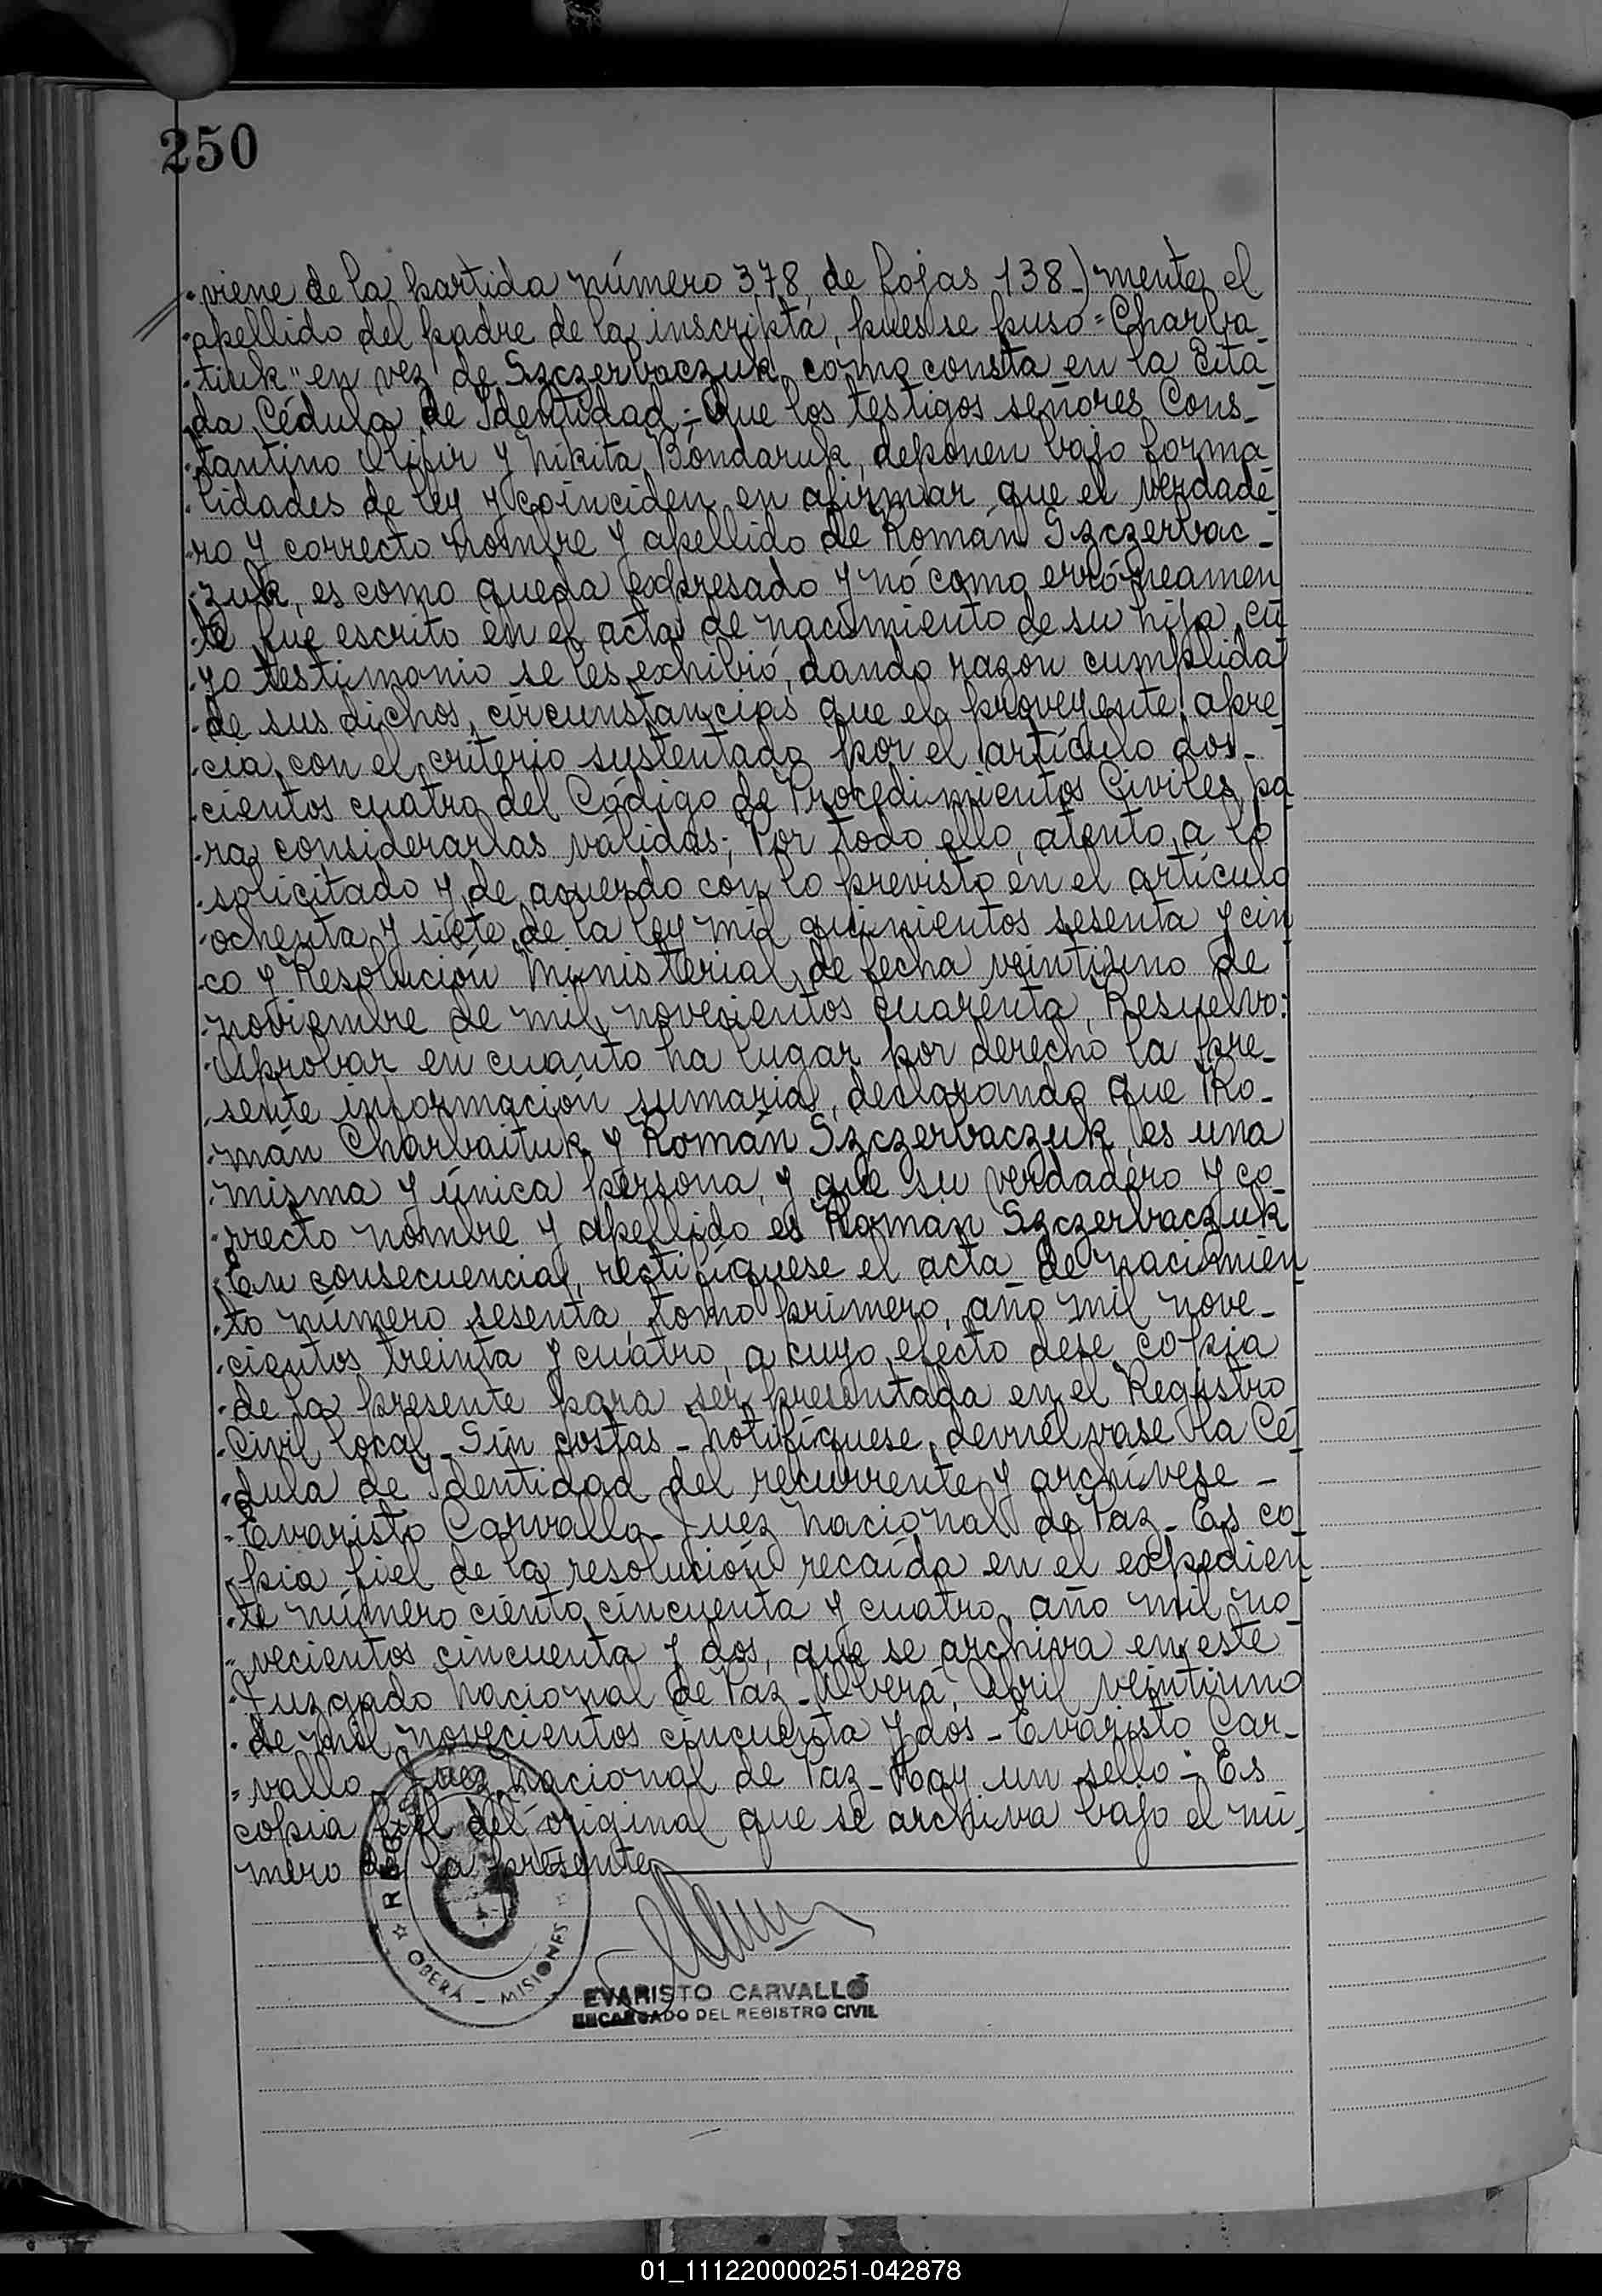 250
viene de la partida número 378, de fojas 138_) mente el
apellido del padre de la inscripta, pues se puso "Charva
tiuk" en vez de Szczerbaczuk, como consta en la cita
da Cédula de Identidad;- Que los testigos señores Cons_
tantino y Nikita Bondaruk, deponen bajo forma
lidades de ley y coinciden en afirmar que el verdade
ro y correcto nombre y apellido de Román Szczerbac_
zuk, es como queda expresado y nó como erróneamen
te fué escrito en el acta de nacimiento de su hija, cu
yo testimonio se les exhibió, dando razón cumplida
de sus dichos, circunstancias que el proveyente apre
cia con el criterio sustentado por el artículo dos_
cientos cuatro del Código de Procedimientos Civiles, pa
ra considerarlas válidas; Por todo ello, atento a lo
solicitado y de acuerdo con lo previsto en el artículo
ochenta y siete de la ley mil quinientos sesenta y cin
co y Resolución Ministerial de fecha veintiuno de
noviembre de mil novecientos cuarenta, Resuelvo:
Aprobar en cuanto ha lugar por derecho la pre_
sente información sumaria, declarando que Ro_
mán Charbaituk y Román Szczerbaczuk, es una
misma y única persona, y que su verdadero y co_
rrecto nombre y apellido es Román Szczerbaczuk
En consecuencia, rectifíquese el acta de nacimien
to número sesenta, tomo primero, año mil nove_
cientos treinta y cuatro, a cuyo efecto dese copia
de la presente para ser presentada en el Registro
Civil local_ Sin costas_ Notifíquese, devuélvase la Cé
dula de Identidad del recurrente y archívese_
Evaristo Carvallo_ Juez Nacional de Paz_ Es co
pia fiel de la resolución recaída en el expedien
te número ciento cincuenta y cuatro, año mil no
vecientos cincuenta y dos, que se archiva en este
Juzgado Nacional de Paz_ Oberá, Abril veintiuno
de mil novecientos cincuenta y dos_ Evaristo Car_
vallo_ Juez Nacional de Paz_ Hay un sello_" Es
copia fiel del original que se archiva bajo el nú_
mero de la presente
REG
OBERÁ - MISIONES
EVARISTO CARVALLO
ENCARGADO DEL REGISTRO CIVIL
01_111220000251-042878